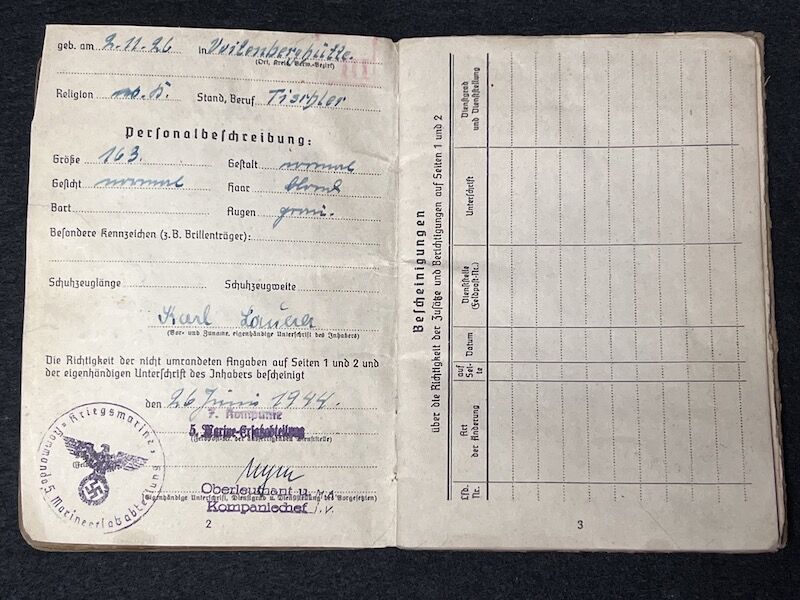 geb. am 2.11.26 in Veilenberghütte.
(Ort, Kreis, Verw.-Bezirk)
Religion Stand, Beruf Tischler
Personalbeschreibung:
Größe 163. Gestalt normal
Gesicht normal Haar blond
Bart Augen grau.
Besondere Kennzeichen (z.B. Brillenträger):
Schuhzeuglänge Schuhzeugweite
Karl Lauer
(Vor- und Zuname, eigenhändige Unterschrift des Inhabers)
Die Richtigkeit der nicht umrandeten Angaben auf Seiten 1 und 2 und
der eigenhändigen Unterschrift des Inhabers bescheinigt
den 26 Juni 1944.
7. Kompanie
5. Marine-Ersatzabteilung
Oberleutnant u.
(Eigenhändige Unterschrift, Dienstgrad u. Dienststellung des Vorgesetzten)
Kompaniechef
Kriegsmarine
Kommando 5 Marineersatzabteilung
2
Bescheinigungen
über die Richtigkeit der Zusätze und Berichtigungen auf Seiten 1 und 2
Lfd. Nr.
Art der Änderung
auf Seite
Datum
Dienststelle (Feldpost-Nr.)
Unterschrift
Dienstgrad und Dienststellung
3